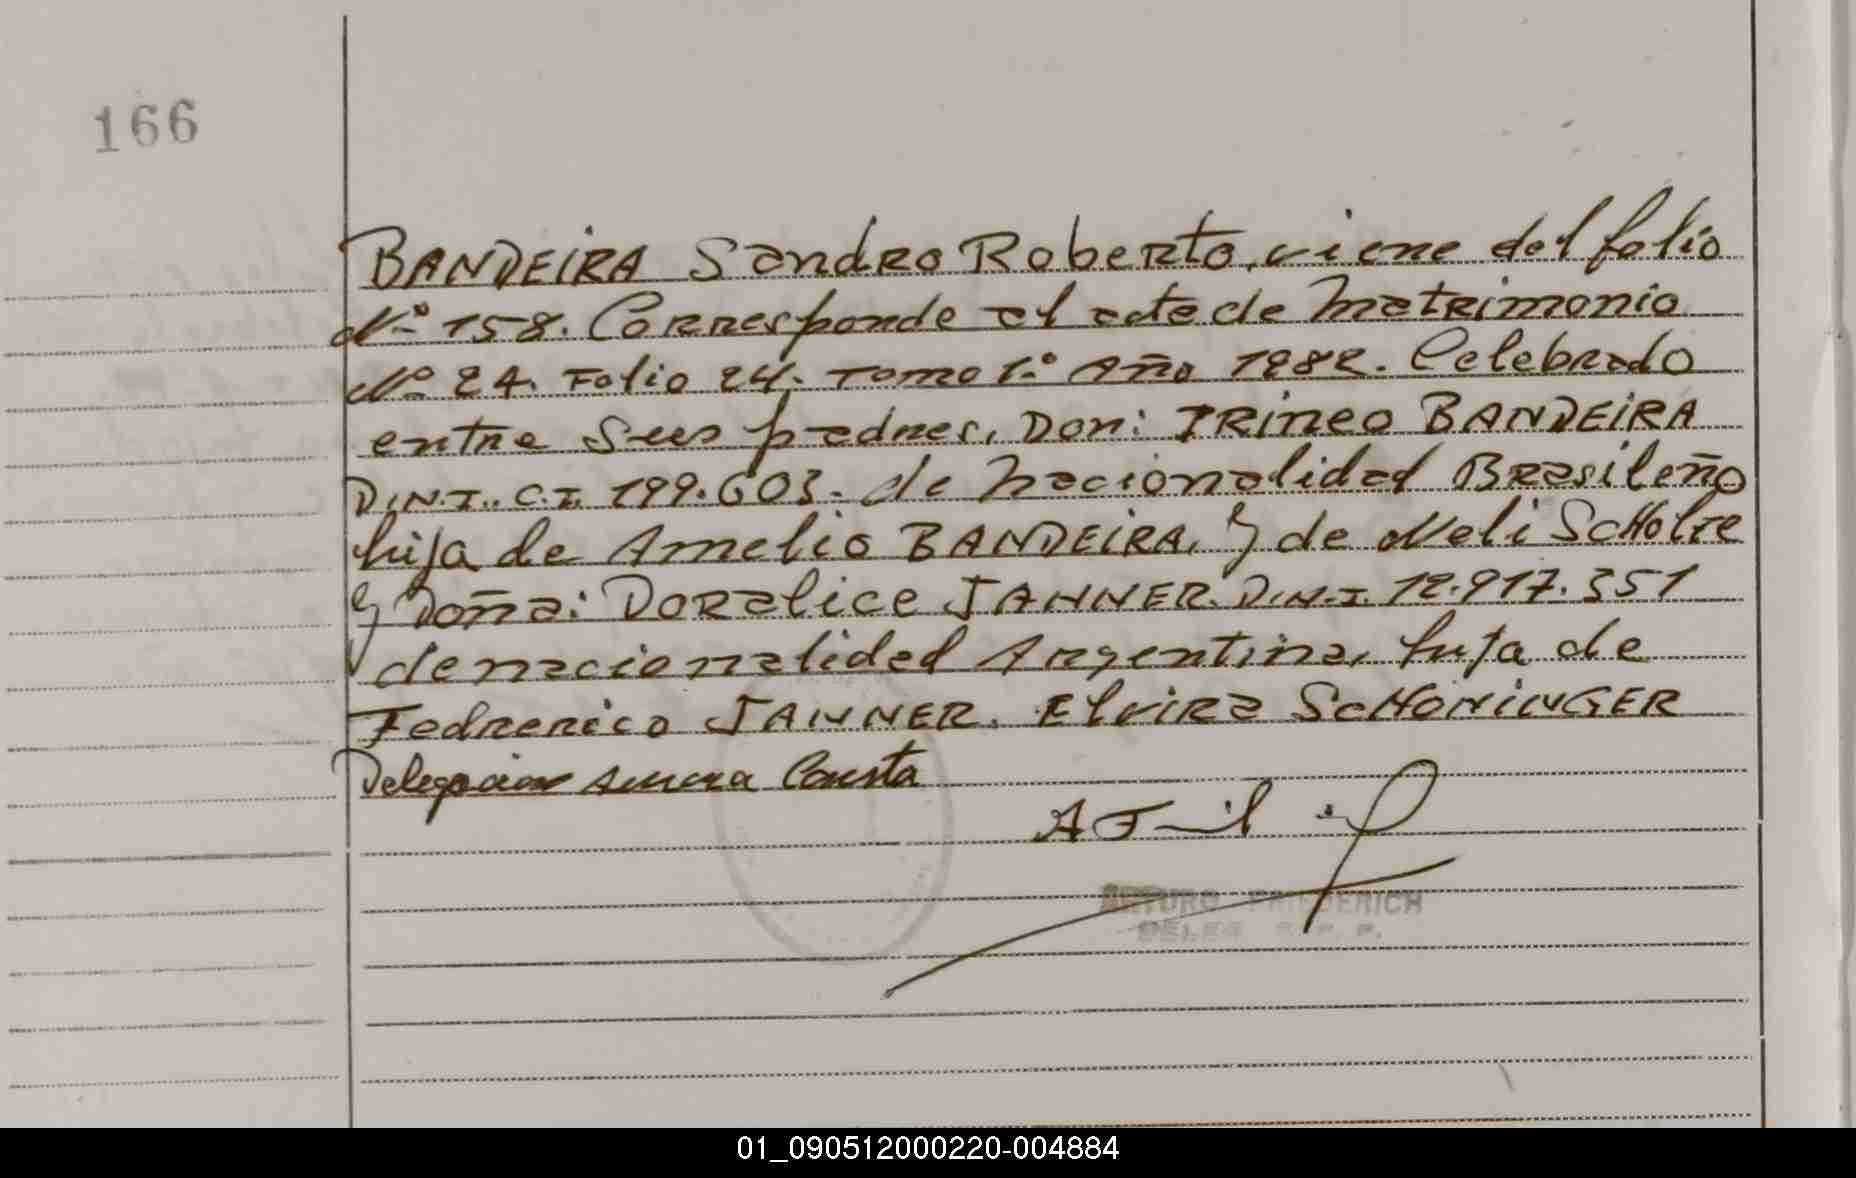 166
BANDEIRA Sandro Roberto, viene del folio
Nº 158. Corresponde al acta de Matrimonio
Nº 24. Folio 24. Tomo 1º Año 1982. Celebrado
entre sus padres, Don: IRineo BANDEIRA
D.N.I.. C.I. 199.603. de nacionalidad Brasileño
hijo de Amelio BANDEIRA, y de Neli ScHolze
y Doña: Doralice JANNER. D.N.I. 12.917.351
de nacionalidad Argentina, hija de
Fedrerico JANNER. Elvira ScHONINGER
Delegacion
ARTURO FRIEDERICH
DELEG. R. P. P.
01_090512000220-004884